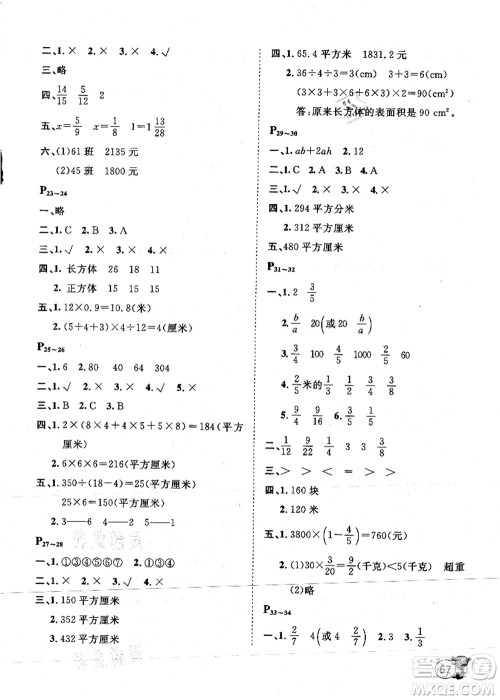 二、1.× 2.× 3.× 4.√
三、略
四、14/15 5/12 2
五、x=5/9 x=1 x=1 13/28
六、(1)61 班 2135 元
(2)45 班 1800 元
P23~24
一、略
二、1. C 2. B 3. A
三、1.√ 2.× 3.√ 4.√
四、1. 长方体 26 18 11
2. 正方体 15 15 15
五、1. 12×0.9=10.8(米)
2. (5+4+3)×4÷12=4(厘米)
P25~26
一、1. 6 2. 80 40 64 304
二、1.√ 2.× 3.√ 4.√ 5.×
三、1. B 2. C 3. A
四、1. 2×(8×4+8×5+4×5)=184(平方
厘米)
2. 6×6×6=216(平方厘米)
五、1. 350÷(18-4)=25(平方厘米)
25×6=150(平方厘米)
六、2.3——5 1——4
P27~28
一、1. ①③④ 2. ①②③④
二、1.× 2.×
三、1. 150 平方厘米
2. 352 平方厘米
3. 432 平方厘米
四、1. 65.4 平方米 1831.2 元
2. 36÷4÷3=3(cm) 3+3=6(cm)
(3×3+3×6+6×3)×2=90(cm²)
答:原来长方体的表面积是 90 cm²。
P29~30
一、1. ab+2ah 2. 12
二、1.× 2.× 3.×
三、1. B 2. B 3. A
四、1. 294 平方分米
2. 312 平方厘米
五、480 平方厘米
P31~32
一、1. 2 3/5
2. b/a 20(或 b/a) 20(或 b/a)
3. 1/20 3/4 1000 600
4. 3/5米的 1/3 3/5 1/3 1/5
5. 6/49 9/16
二、1/9 1/12 3/10 9/13
三、> > < >
四、1. 160 块
五、1. 3800×(1-4/5)=760(元)
2. (1)30×3/20=4 1/2(千克)<5(千克) 超重
(2)略
P33~34
一、1. 2/7 6(或2/7) 2. 4/3 3. 1/3
67